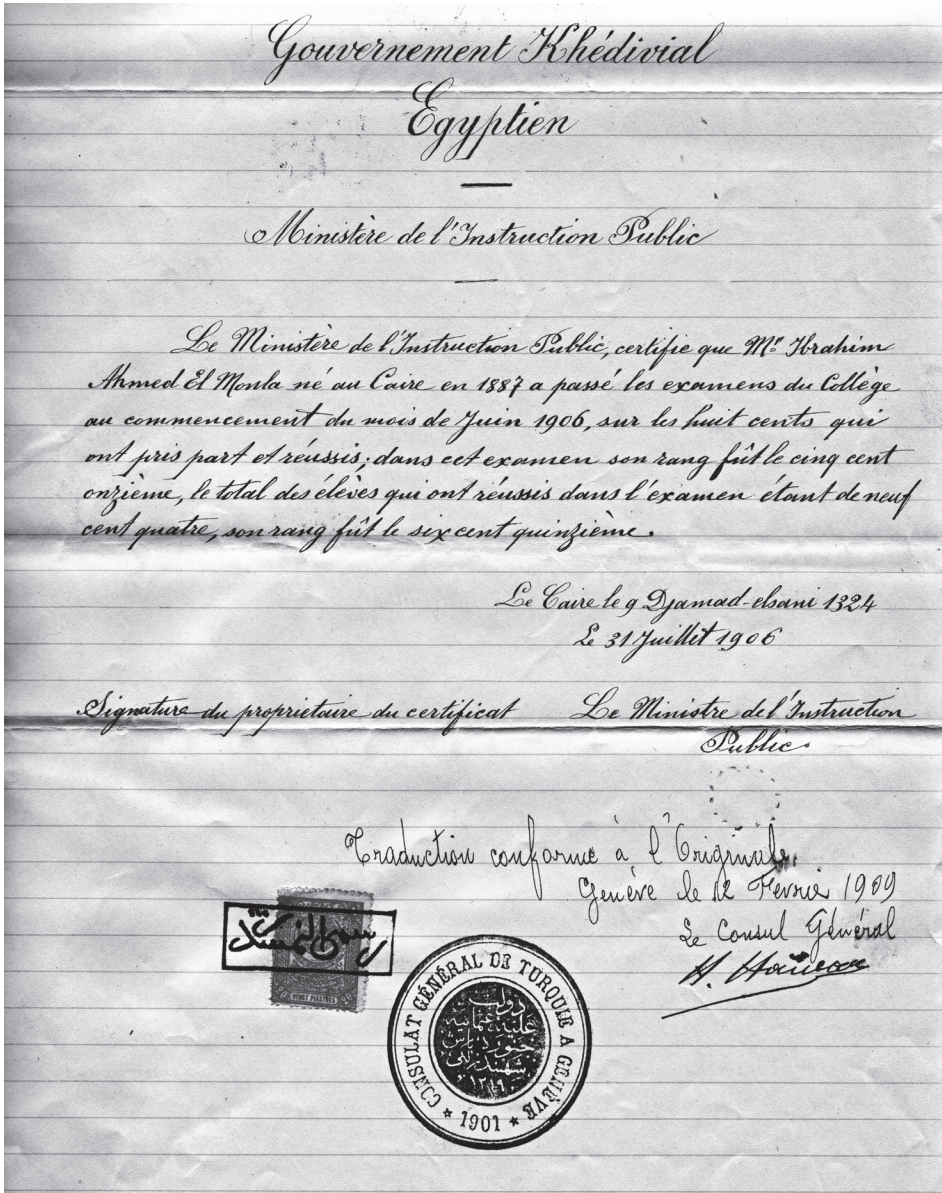 Gouvernement Khédivial
Egyptien
Ministère de l'Instruction Public
Le Ministère de l'Instruction Public, certifie que Mr Ibrahim
Ahmed El Monla né au Caire en 1887 a passé les examens du Collège
au commencement du mois de Juin 1906, sur les huit cents qui
ont pris part et réussis; dans cet examen son rang fût le cinq cent
onzième, le total des élèves qui ont réussis dans l'examen étant de neuf
cent quatre, son rang fût le six cent quinzième.
Le Caire le 9 Djamad-elsani 1324
Le 31 Juillet 1906
Signature du proprietaire du certificat
Le Ministre de l'Instruction
Public.
Traduction conforme à l'Originale.
Genève le 12 Fevrier 1909
Le Consul Général
VINGT PIASTRES
20 20
CONSULAT GÉNÉRAL DE TURQUIE A GENÈVE
دولت
علیه عثمانیه
شهبندرلكی
١٣١٩
* 1901 *